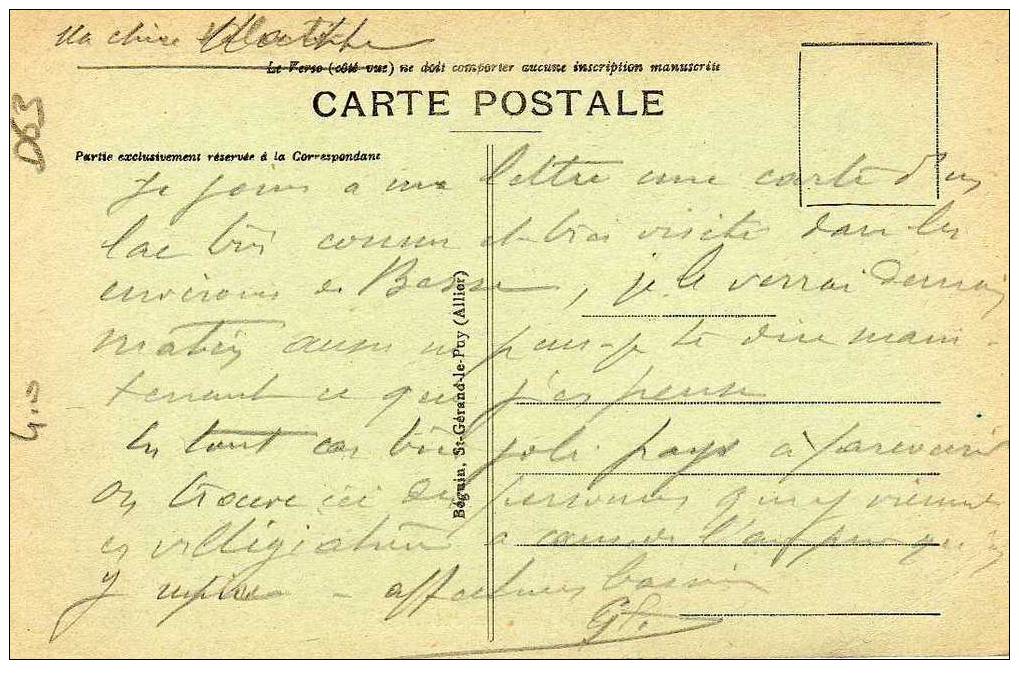 Ma chère
Le Verso (côté vue) ne doit comporter aucune inscription manuscrite
CARTE POSTALE
Partie exclusivement réservée à la Correspondant
Je joins a ma lettre une carte d'un
lac très connu et très visité dans les
environs de Besse, je le verrai demain
matin aussi ne puis-je te dire main-
tenant ce que j'en pense
En tout cas très joli pays à parcourir
on trouve ici des personnes qui y viennent
en villégiature a cause de l'air pur qu'on
y respire - affectueux baisers
G
Béguin, St-Gérand-le-Puy (Allier)
D63
4.